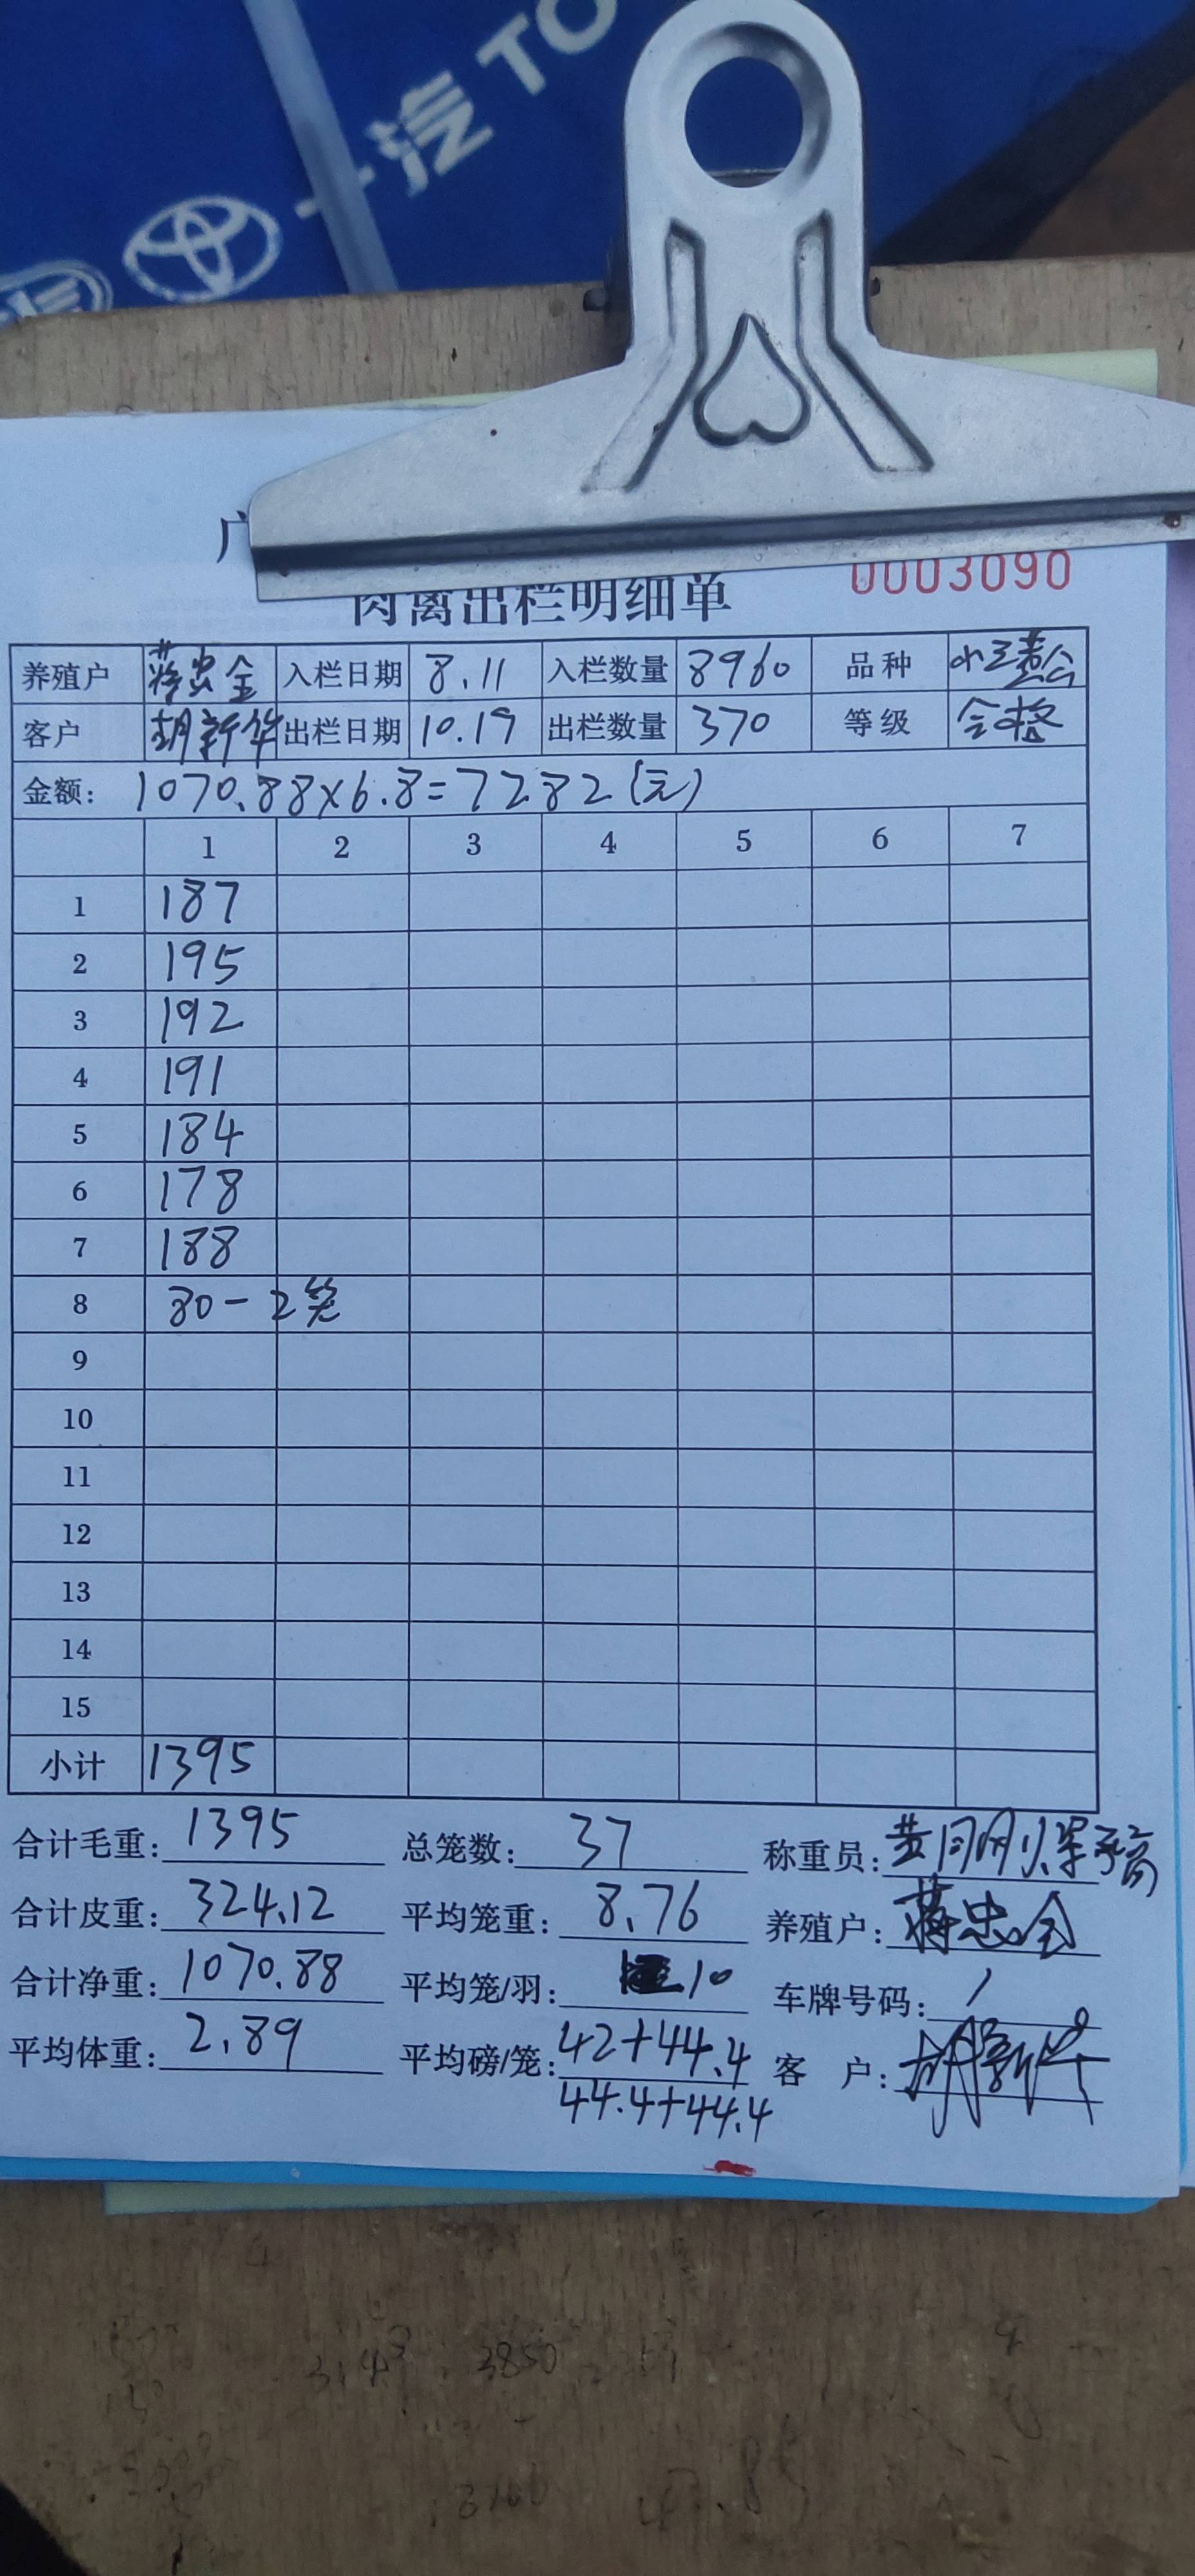 一汽 TO
广
肉禽出栏明细单 0003090
养殖户 蒋忠全 入栏日期 8.11 入栏数量 8960 品种
客户 胡新华 出栏日期 10.19 出栏数量 370 等级 合格
金额: 1070.88×6.8=7282(元)
1 2 3 4 5 6 7
1 187
2 195
3 192
4 191
5 184
6 178
7 188
8 80-2笼
9
10
11
12
13
14
15
小计 1395
合计毛重: 1395 总笼数: 37 称重员:
合计皮重: 324.12 平均笼重: 8.76 养殖户: 蒋忠全
合计净重: 1070.88 平均笼/羽: 10 车牌号码: /
平均体重: 2.89 平均磅/笼: 42+44.4 客 户: 胡新华
44.4+44.4